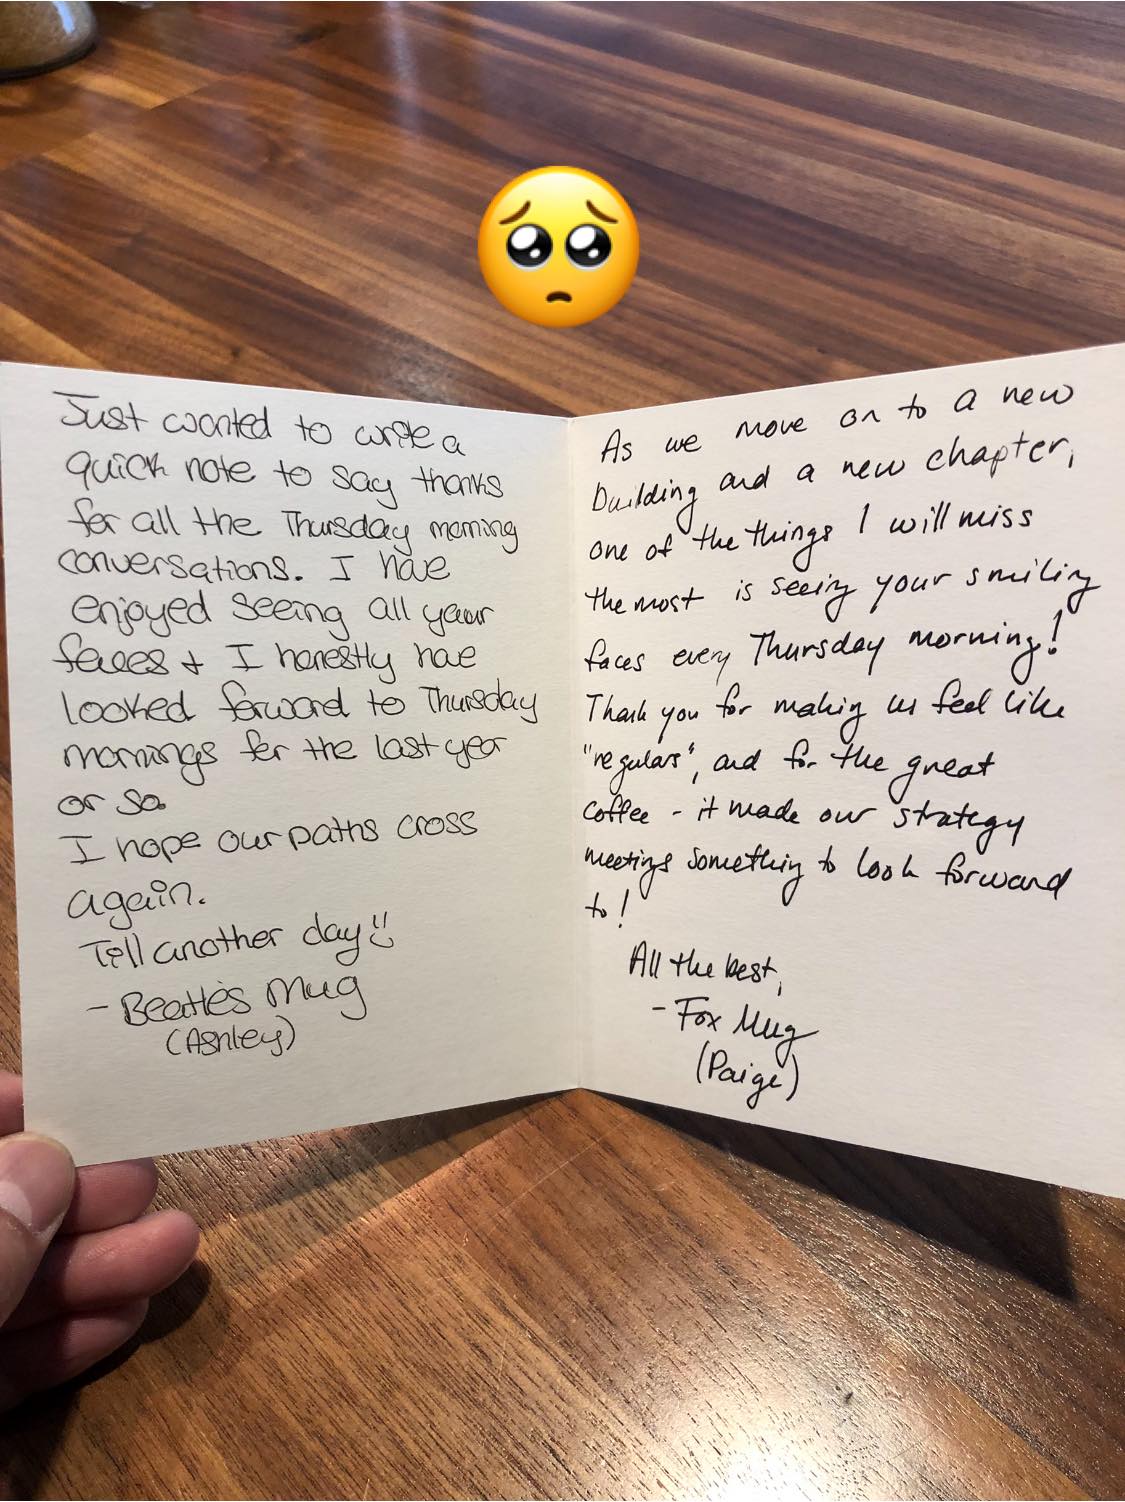 Just wanted to write a
quick note to say thanks
for all the Thursday morning
conversations. I have
enjoyed seeing all your
faces + I honestly have
looked forward to Thursday
mornings for the last year
or so.
I hope our paths cross
again.
Till another day
- Beatles Mug
(Ashley)
As we move on to a new
building and a new chapter,
one of the things I will miss
the most is seeing your smiling
faces every Thursday morning!
Thank you for making us feel like
"regulars", and for the great
coffee - it made our strategy
meetings something to look forward
to!
All the best,
- Fox Mug
(Paige)